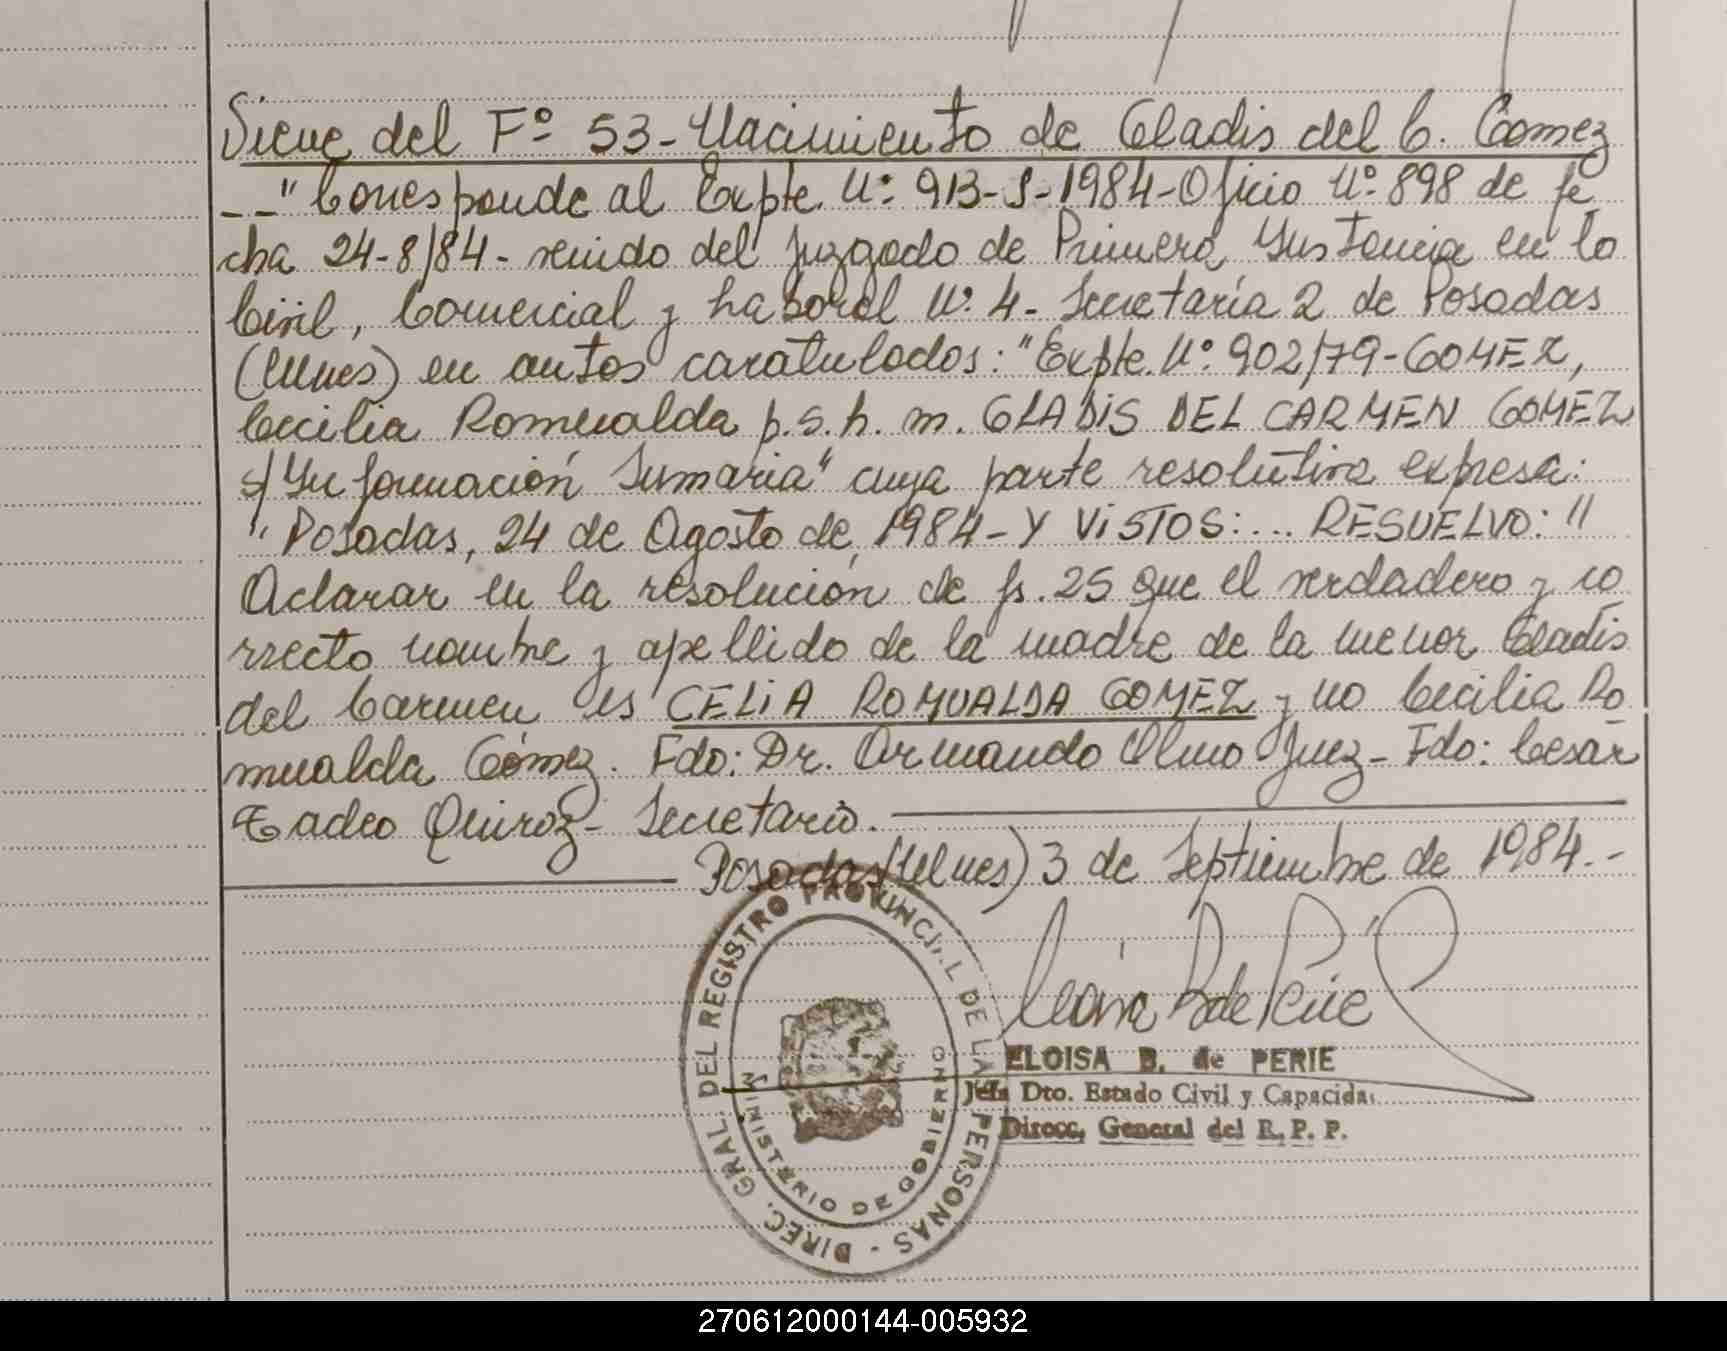 Viene del Fº 53 - Nacimiento de Gladis del C. Gomez
_ _ "Corresponde al Expte. Nº 913-S-1984-Oficio Nº 898 de fe
cha 24-8/84- venido del Juzgado de Primera Instancia en lo
Civil, Comercial y Laboral Nº 4- Secretaría 2 de Posadas
(Mnes) en autos caratulados: "Expte. Nº 902/79-GOMEZ,
Cecilia Romualda p.s.h.m. GLADIS DEL CARMEN GOMEZ
s/ Información Sumaria" cuya parte resolutiva expresa:
"Posadas, 24 de Agosto de 1984- Y VISTOS:... RESUELVO: "
Aclarar en la resolución de fs. 25 que el verdadero y co
rrecto nombre y apellido de la madre de la menor Gladis
del Carmen es CELIA ROMUALDA GOMEZ y no Cecilia Ro
mualda Gómez. Fdo: Dr. Armando Olmo Juez- Fdo: Cesar
Tadeo Quiroz- Secretario.
Posadas (Mnes) 3 de Septiembre de 1984.-
DIREC. GRAL. DEL REGISTRO PROVINCIAL DE LA PERSONAS -
MINISTERIO DE GOBIERNO
ELOISA B. de PERIE
Jefa Dto. Estado Civil y Capacida
Direcc. General del R. P. P.
270612000144-005932